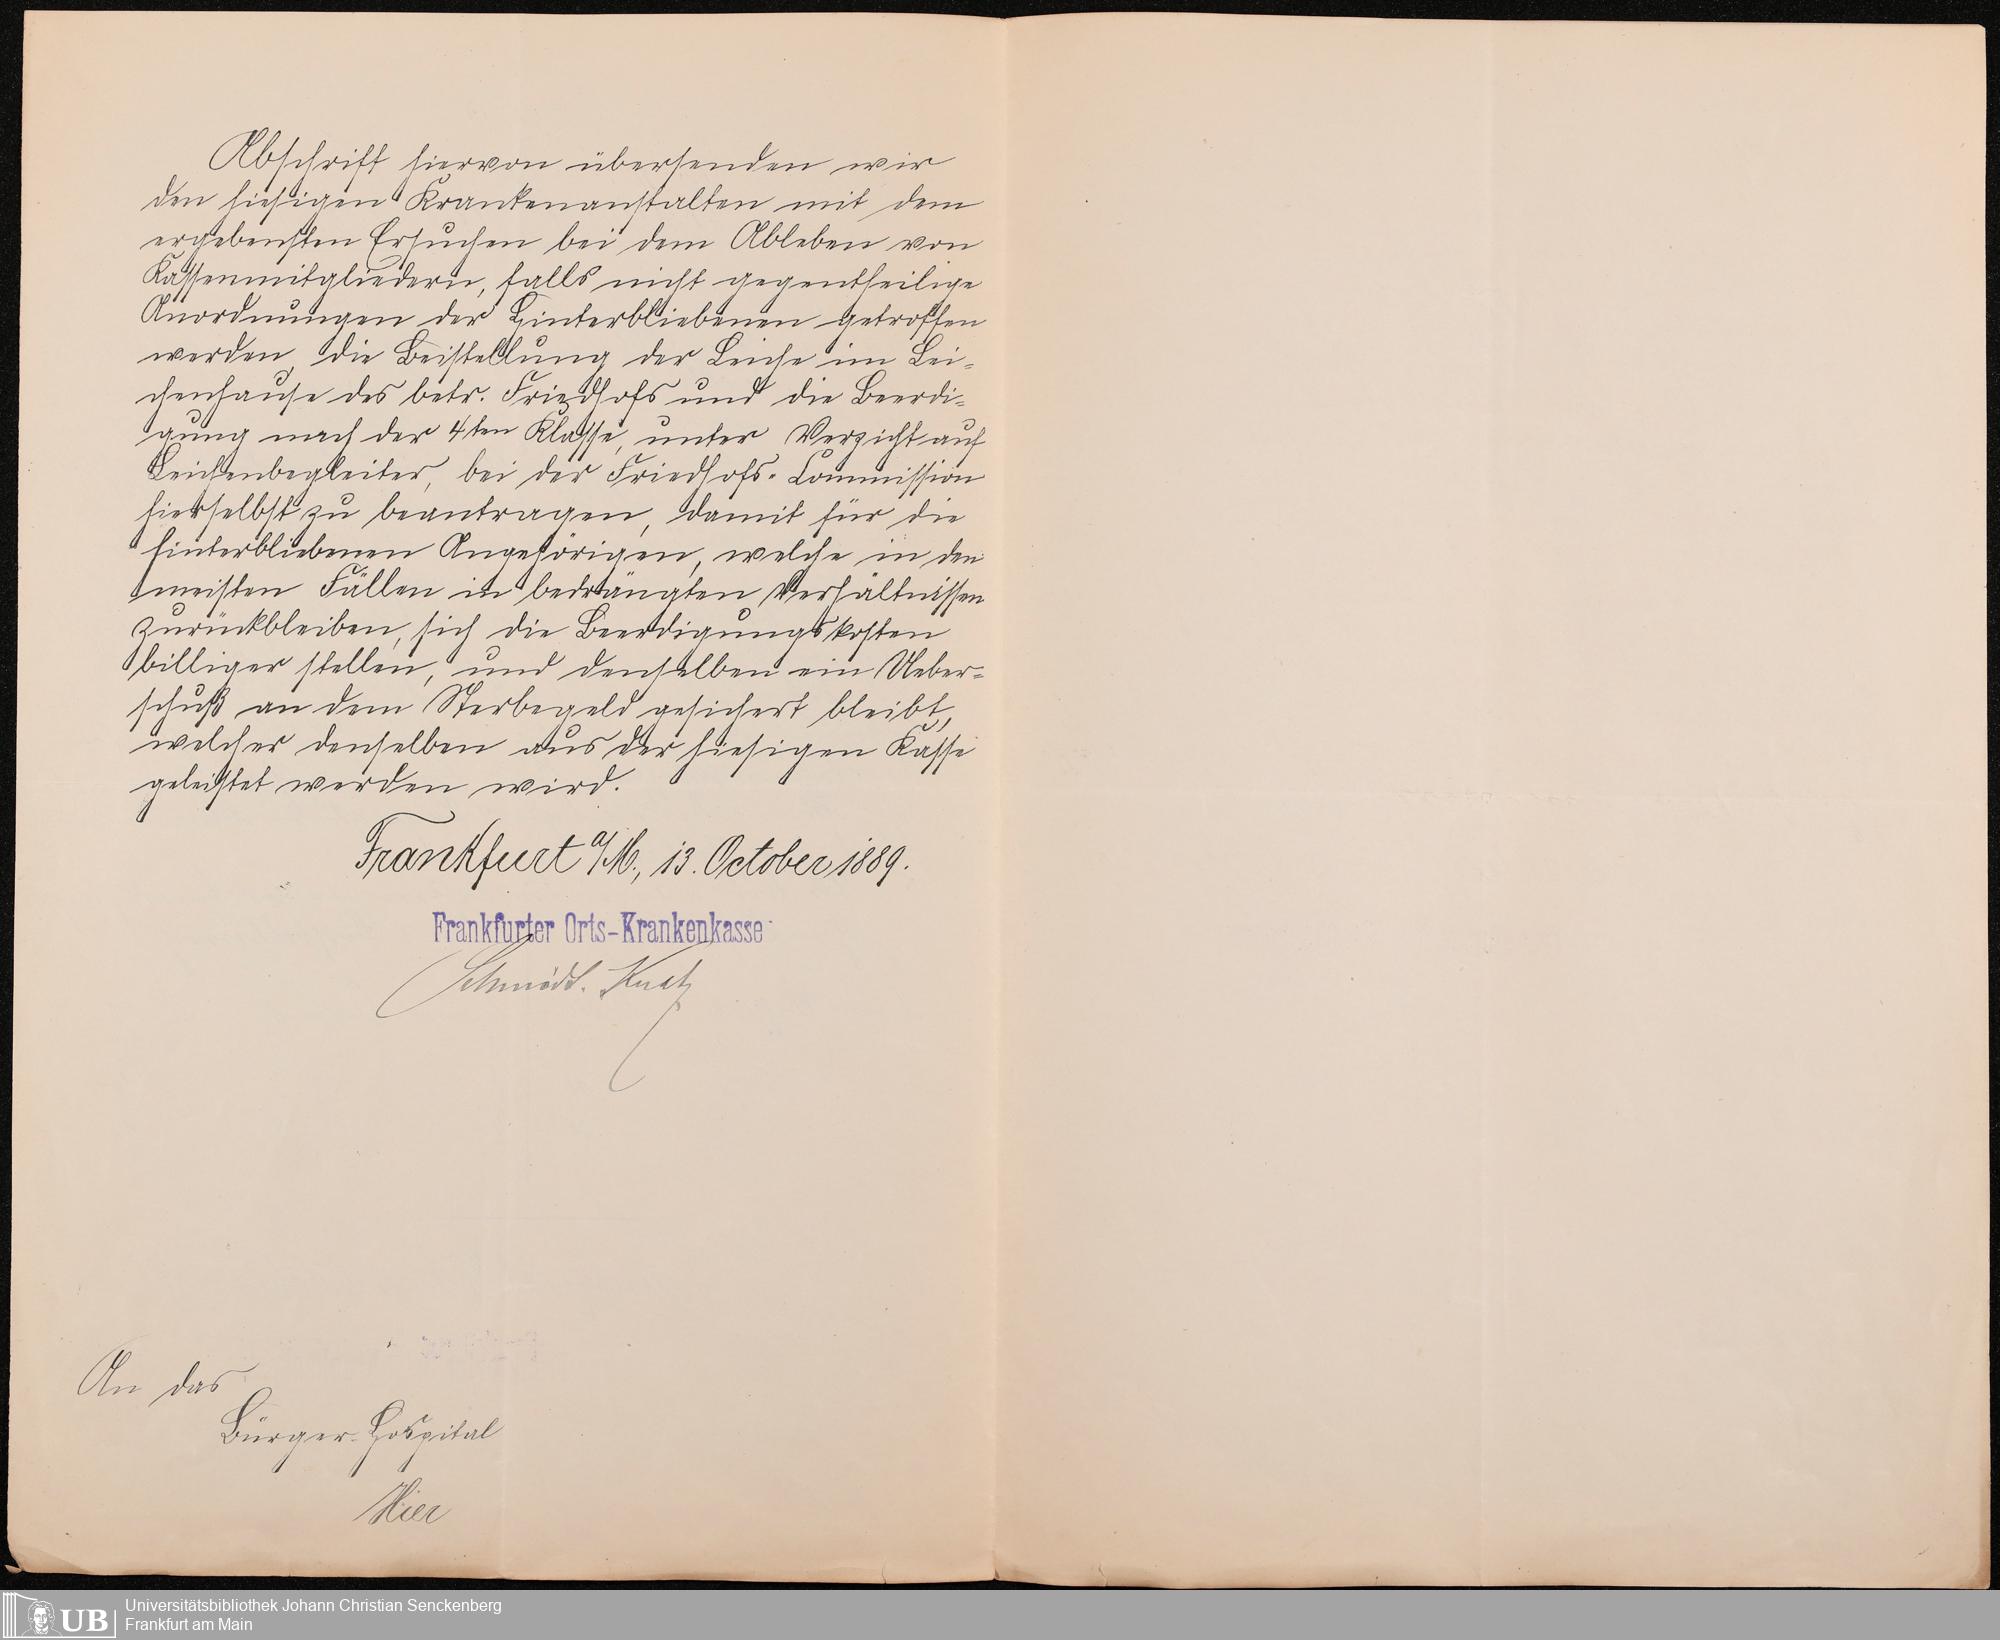 Abschrift hiervon übersenden wir
den hiesigen Krankenanstalten mit dem
ergebensten Ersuchen bei dem Ableben von
Kassenmitgliedern, falls nicht gegentheilige
Anordnungen der Hinterbliebenen getroffen
werden, die Beistellung der Leiche im Lei-
chenhause des betr. Friedhofs und die Beerdi-
gung nach der 4ten Klasse, unter Verzicht auf
Leichenbegleiter, bei der Friedhofs-Commission
hierselbst zu beantragen, damit für die
hinterbliebenen Angehörigen, welche in den
meisten Fällen in bedrängten Verhältnissen
zurückbleiben, sich die Beerdigungskosten
billiger stellen, und denselben ein Ueber-
schuß an dem Sterbegeld gesichert bleibt,
welcher denselben aus der hiesigen Kasse
geleistet werden wird.
Frankfurt a/M., 13. October 1889.
Frankfurter Orts-Krankenkasse
An das
Bürger-Hospital
Hier
UB
Universitätsbibliothek Johann Christian Senckenberg
Frankfurt am Main